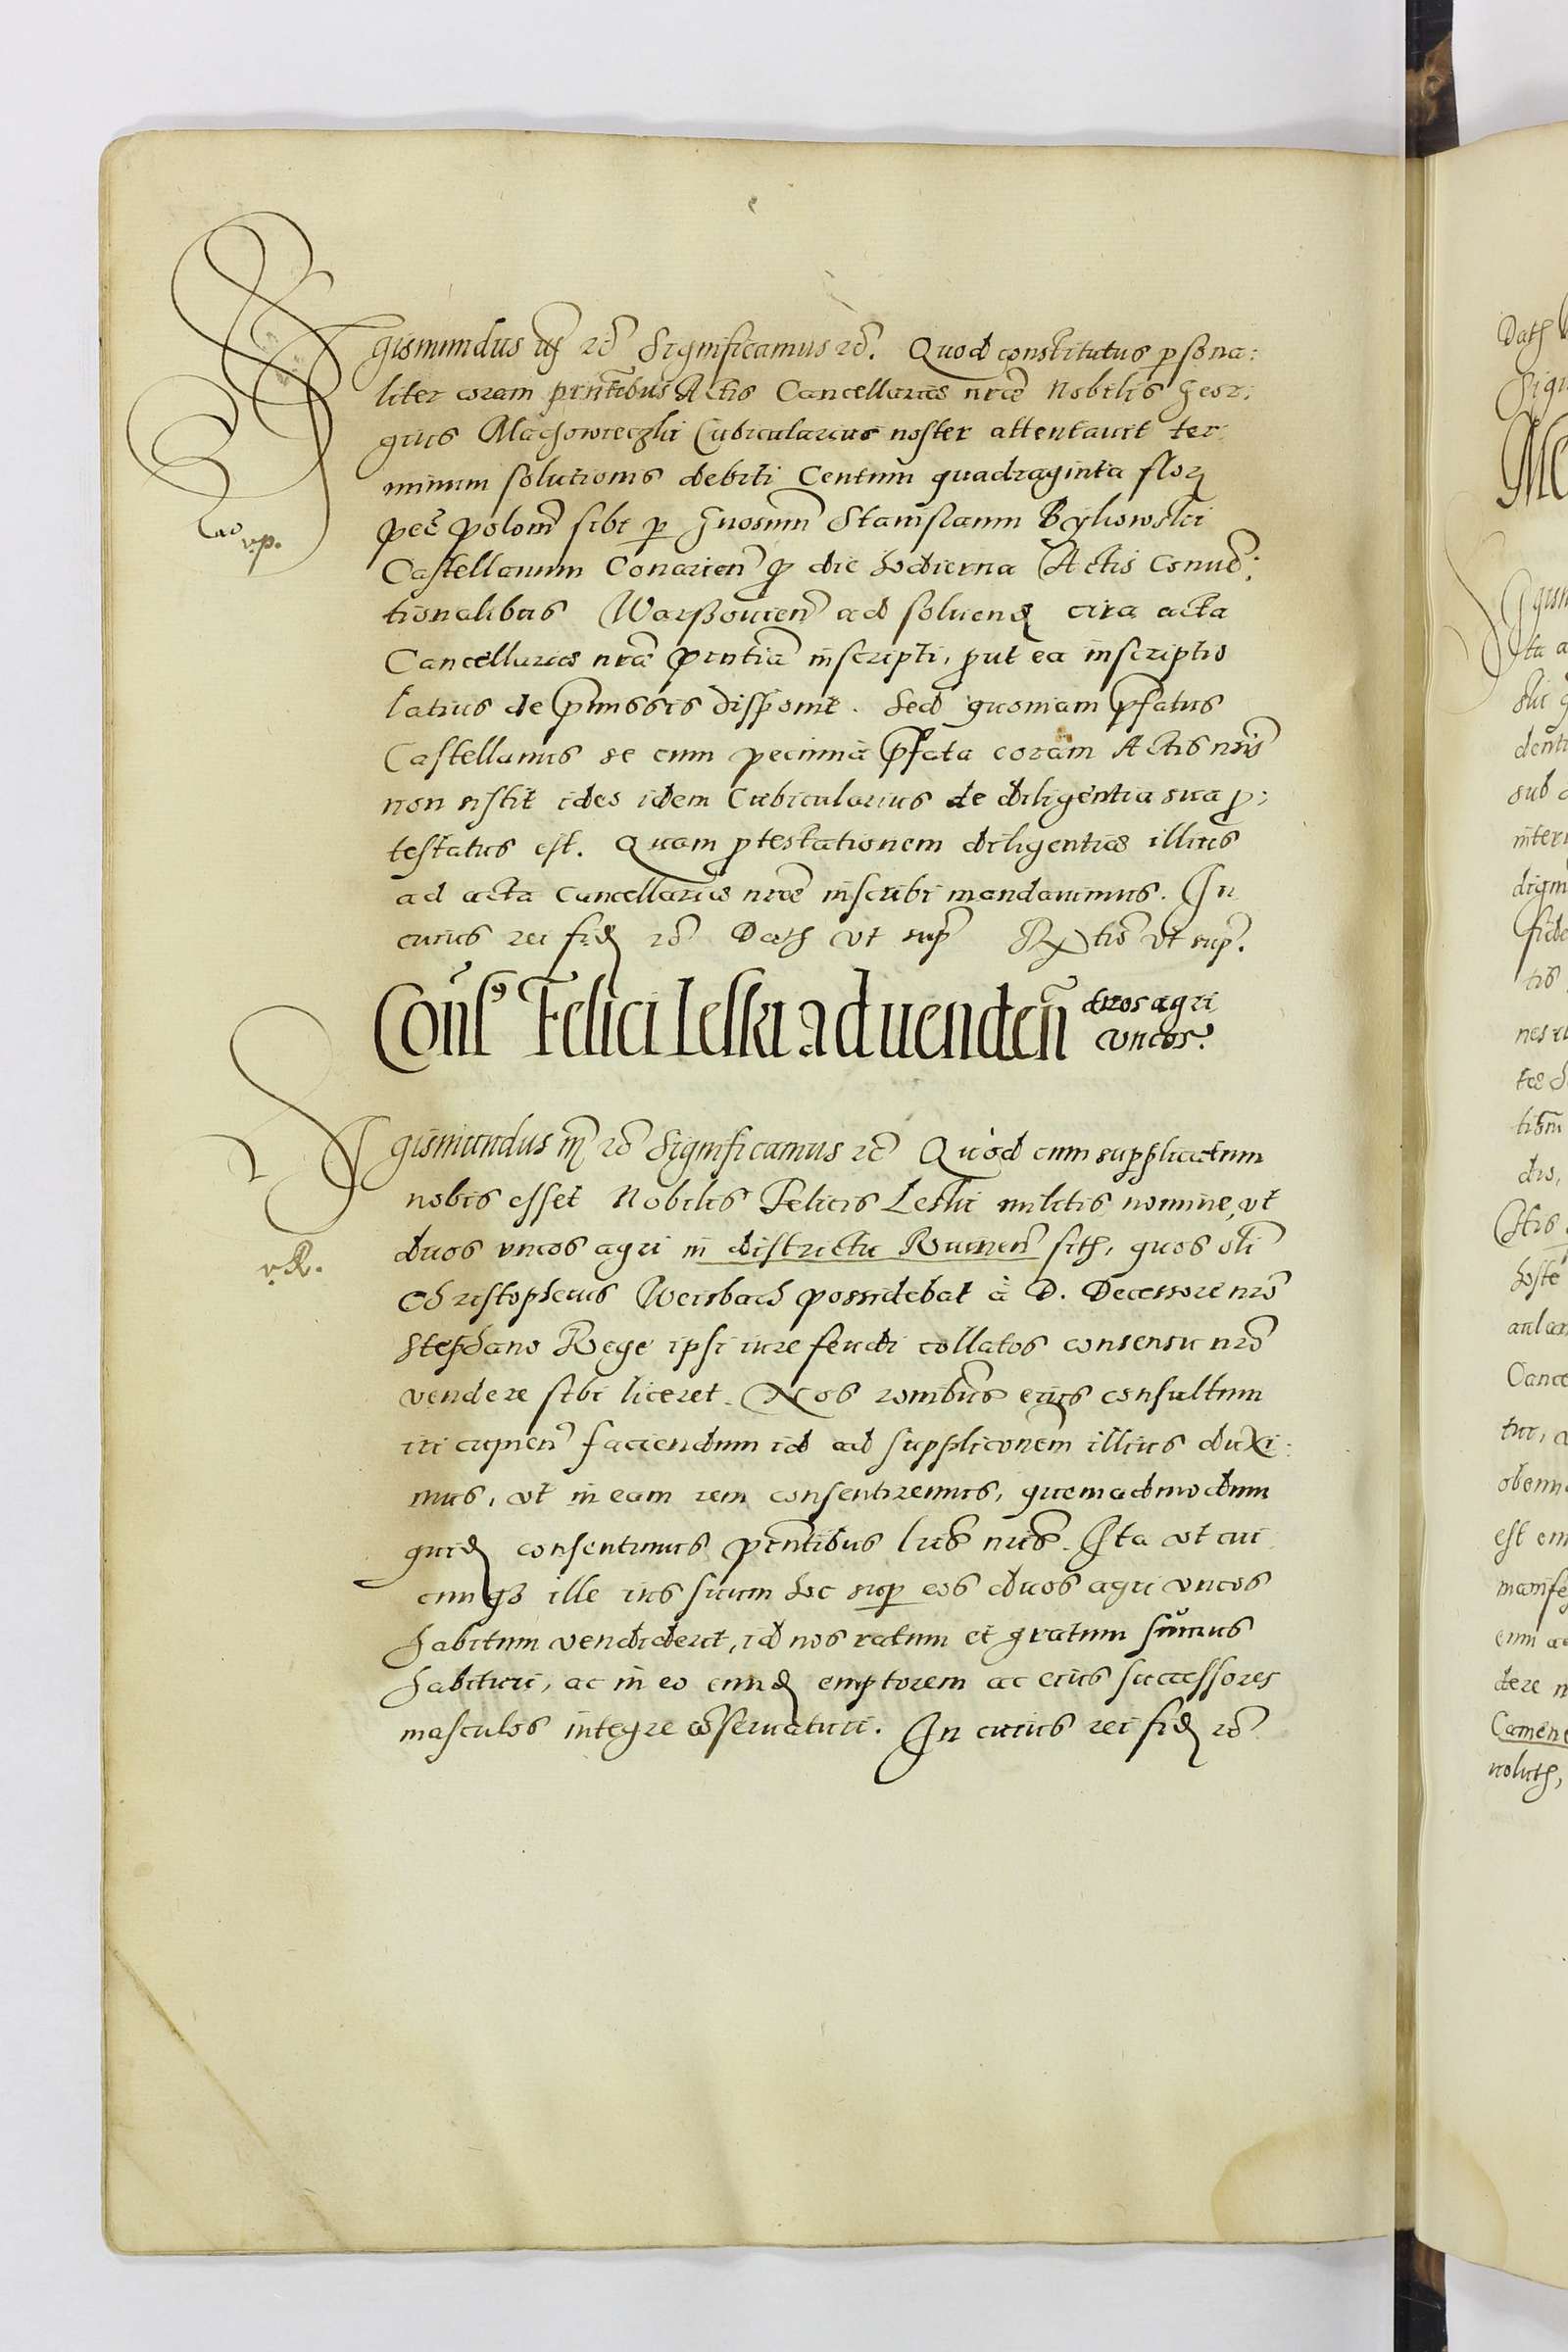 Sigismundus IIIs rc̃ Significamus rc̃. Quod constitutus psona:
liter coram prñtibus Actis Cancellariæ nræ Nobilis Geor:
gius Machowieczki Cubicularius noster attentauit ter:
minum solutionis debiti Centum quadraginta flor
pec̃ polon̄ sibi p Gnosum Stanislaum Bykowski
Castellanum Conarien̄ p die hodierna Actis Conuc̃:
tionalibus Warssouien̄ ad soluend circa acta
Cancellariæ nrã pñtia inscripti, put ea inscriptio
latius de pmissis disponit. Sed quoniam pfatus
Castellanus se cum pecunia pfata coram Actis nris
non sistit ideo idem Cubicularius de diligentia sua p:
testatus est. Quam ptestationem diligentiæ illius
ad acta Cancellariæ nræ inscribi mandauimus. In
cuius rei fid rc̃ Dat ut sup R tis ut sup.
Cons9 Felici Leski ad uenden̄ duos agri
vncos.
Sigismundus III rc̃ Significamus rc̃ Quod cum supplicatum
nobis esset Nobilis Felicis Leski militis nomine, vt
duos vncos agri in districtu Ruinen̄ sit, quos oli
Christopherus Weisbach possidebat à D. Decessore nro
Stephano Rege ipsi iure feudi collatos consensu nro
vendere sibi liceret. Nos ronibus eius consultum
iri cupien̄ faciendum id ad supplicõnem illius duxi:
mus, vt in eam rem consentiremus, quemadmodum
quid consentimus pñtibus lris nris. Ita vt cui
cunq3 ille ius suum hoc sup eos duos agri vncos
habitum vendiderit, id nos ratum et gratum sumus
habituri, ac in eo eund emptorem ac eius successores
masculos integre cõseruaturi. In cuius rei fid rc̃
vR.